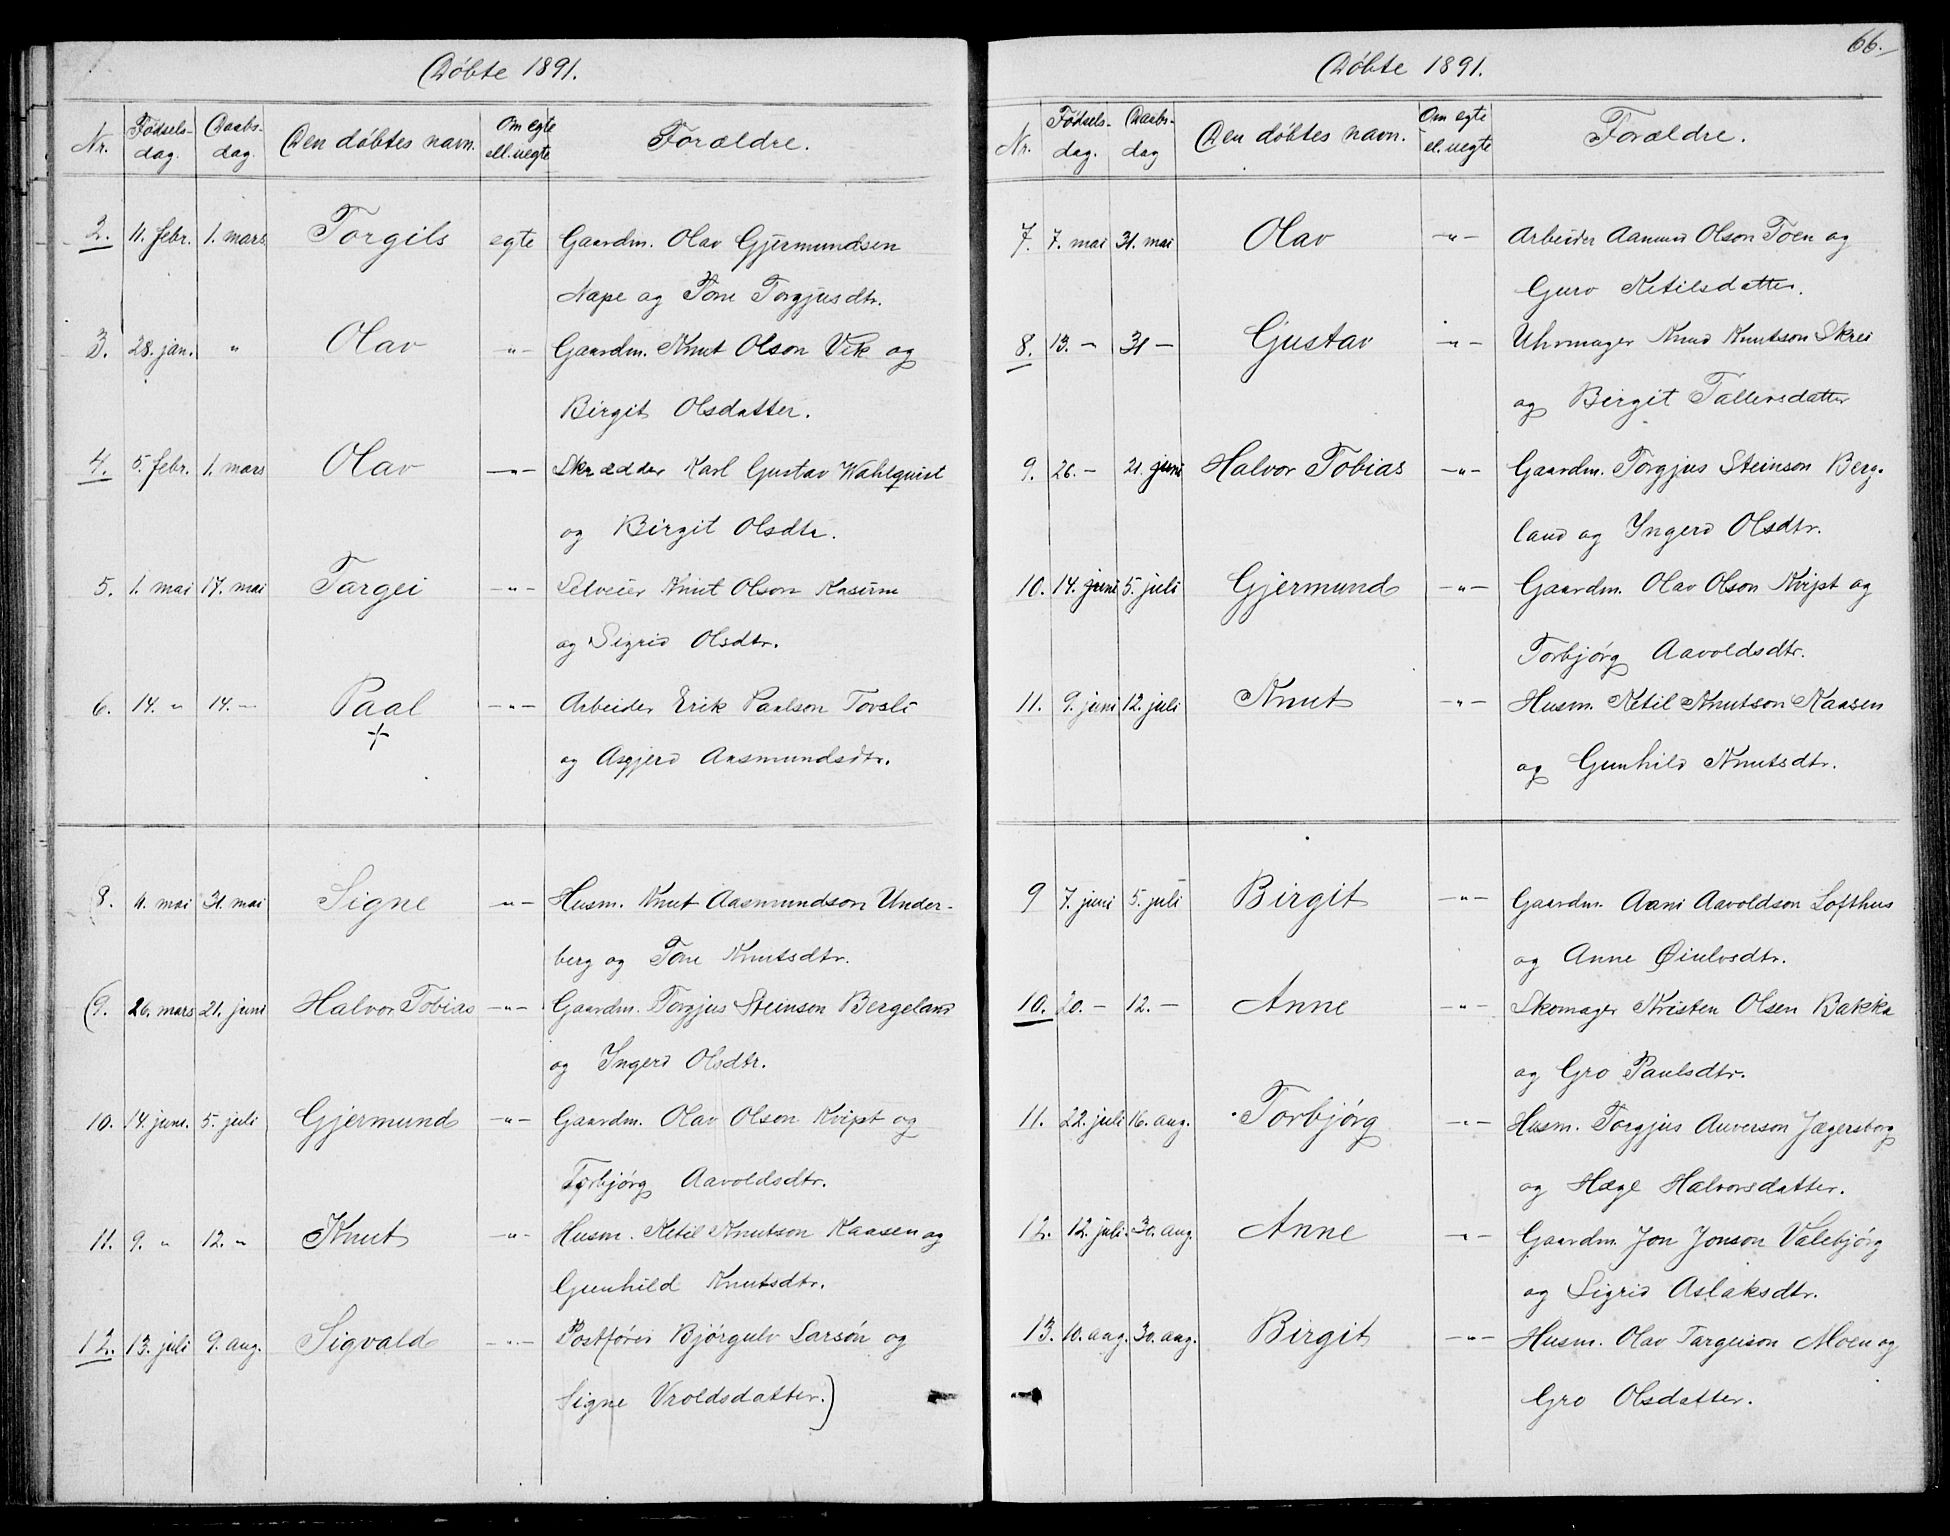 Døbte 1891.
Nr. Fødsels-dag. Daabs-dag. Den døbtes navn. Om egte ell. uegte Forældre.
2. 11. febr. 1. mars Torgils egte Gaardm. Olav Gjermundsen
Nape og Tone Torgjusdtr.
3. 28. jan. " Olav -"- Gaardm. Knut Olson Vik og
Birgit Olsdatter.
4. 5. febr. 1. mars Olav -"- Skrædder Karl Gustav Wahlquist
og Birgit Olsdtr.
5. 1. mai 17. mai Targei -"- Selveier Knut Olson
og Sigrid Olsdtr.
6. 14. " 14. - Paal -"- Arbeider Erik Paalson Tovsli
+
og Asgjerd Aasmundsdtr.
(8. 11. mai 31. mai Signe -"- Husm. Knut Aasmundson Under-
berg og Tone Knutsdtr.
(9. 26. mars 21. juni Halvor Tobias -"- Gaardm. Torgjus Steinson Bergeland
og Ingerd Olsdtr.
10. 14. juni. 5. juli Gjermund -"- Gaardm. Olav Olson Kvipt og
Torbjørg Aavoldsdtr.
11. 9. " 12. " Knut -"- Husm. Ketil Knutson Kaasen og
Gunhild Knutsdtr.
12. 13. juli 9. aug. Sigvald -"- Postfører Bjørgulv Larsøn og
Signe Vroldsdatter.)
66.
Døbte 1891.
Nr. Fødsels-dag. Daabs-dag Den døbtes navn. Om egte el. uegte Forældre.
7. 7. mai 31. mai Olav -"- Arbeider Aamund Olson Toen og
Guro Ketilsdatter.
8. 13. - 31 - Gustav -"- Uhrmager Knud Knutson Skrei
og Birgit Tallevsdatter
9. 26. - 21. juni Halvor Tobias -"- Gaardm. Torgjus Steinson Berg-
land og Ingerd Olsdtr.
10. 14. juni 5. juli Gjermund -"- Gaardm. Olav Olson Kvipt og
Torbjørg Aavoldsdtr.
11. 9. juni 12. juli Knut -"- Husm. Ketil Knutson Kaasen
og Gunhild Knutsdtr.
9 7. juni 5. juli Birgit -"- Gaardm. Aani Aavoldson Lofthus
og Anne Øiulvsdtr.
10. 20. - 12. - Anne -"- Skomager Kristen Olsen Bakka
og Gro Paulsdtr.
11. 22. juli 16. aug. Torbjørg -"- Husm. Torgjus Auverson Jægersborg
og Hæge Halvorsdatter.
12. 12. juli. 30. aug. Anne -"- Gaardm. Jon Jonson Valebjørg
og Sigrid Aslaksdtr.
13. 10. aug. 30. aug. Birgit -"- Husm. Olav Targeison Moen og
Gro Olsdatter.